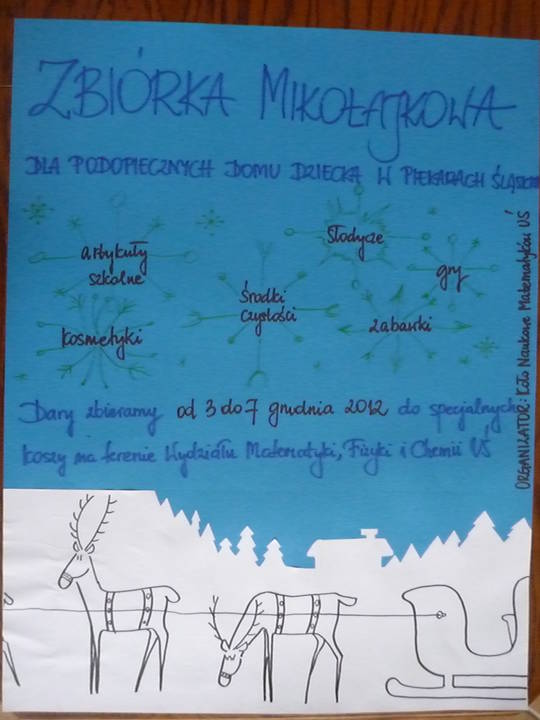 ZBIÓRKA MIKOŁAJKOWA
DLA PODOPIECZNYCH DOMU DZIECKA W PIEKARACH ŚLĄSKICH
artykuły
szkolne
Słodycze
gry
Środki
czystości
kosmetyki
zabawki
Dary zbieramy od 3 do 7 grudnia 2012 do specjalnych
koszy na terenie Wydziału Matematyki, Fizyki i Chemii UŚ
ORGANIZATOR: Koło Naukowe Matematyków UŚ